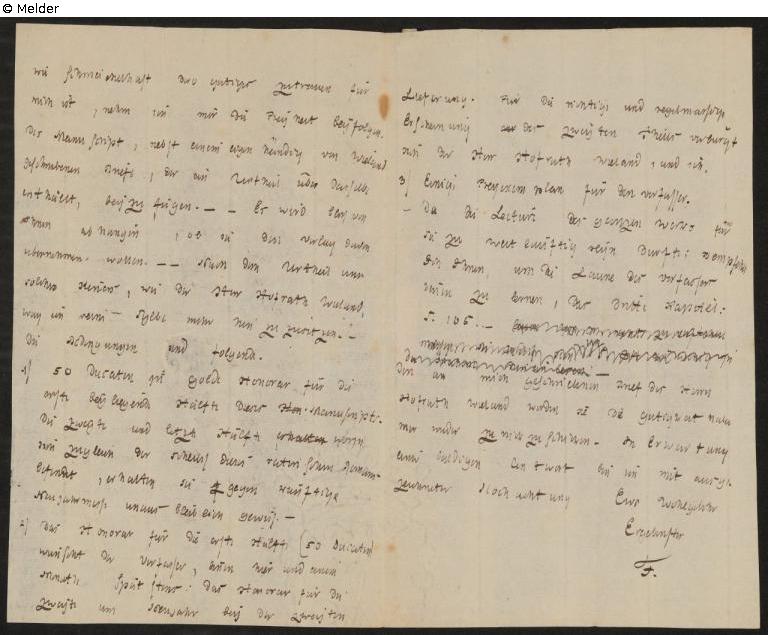 © Melder
wie schmeichelhaft Dero gütiges Zutrauen für
mich ist, nehm ich mir die Freiheit beyfolgen
des Manuscript, nebst einem eigenhändig von Wieland
geschriebenen Briefe, der ein Urtheil über dasselbe
enthält, beyzufügen. — — Es wird
Ihnen abhangen, ob sie den Verlag davon
übernehmen wollen. — — Nach dem Urtheil von
solchen Kenner, wie der Herr Hofrath Wieland,
wag ich keine Sylbe mehr hin zu zusetzen. —
Die Bedingungen sind folgende.
1) 50 Ducaten in Golde Honorar für die
erste beyliegende Hälfte dieses Manuscripts.
Die zweyte und letzte Hälfte worin
der Schlüssel dieses satirischen Romans
befindet, erhalten sie gegen künftige
Neujahrmesse unausbleiblich gewiß. —
2) Das Honorar für die erste Hälfte (50 Ducaten)
wünscht der Verfasser, binnen hier und einem
Monath spätstens: das Honorar für die
zweyte um Neujahr bey der zweyten
Lieferung. Für die richtige und regelmässige
Erscheinung der zweyten Theiles verbürgt
sich der Herr Hofrath Wieland, und ich.
3) Einige Freyexemplare für den Verfasser.
— Da die Lecture des ganzen Werks für
sie zu weitläuftig seyn dürfte:
ich Ihnen, um die Laune des Verfassers
kennen zu lernen, das dritte Kapitel:
S. 106. —
Den an mich geschriebenen Brief des Herrn
Hofrath Wieland werden sie die Gütigkeit haben
mir wieder zurück zu schicken. In Erwartung
einer baldigen Antwort bin ich mit ausge-
zeichneter Hochachtung Euer Wohlgebohr
Ergebenster
F.